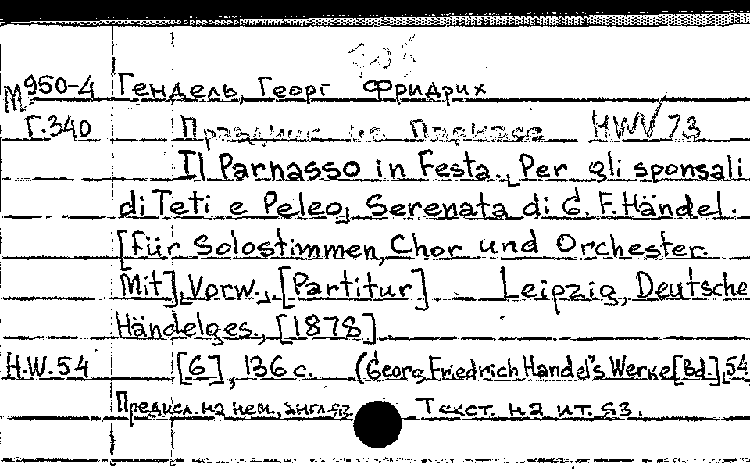 305
M 950-4 Гендель, Георг Фридрих
Г.340 Праздник на Парнасе HWV 73
Il Parnasso in Festa., Per gli sponsali
di Teti e Peleo, Serenata di G. F. Händel.
[für Solostimmen, Chor und Orchester.
Mit], Vorw., [Partitur] Leipzig, Deutsche
Händelges., [1878].
H.W. 54 [6], 136 с. (Georg Friedrich Handel's Werke [Bd.], 54
Предисл. на нем., англ. яз. Текст. на ит. яз.